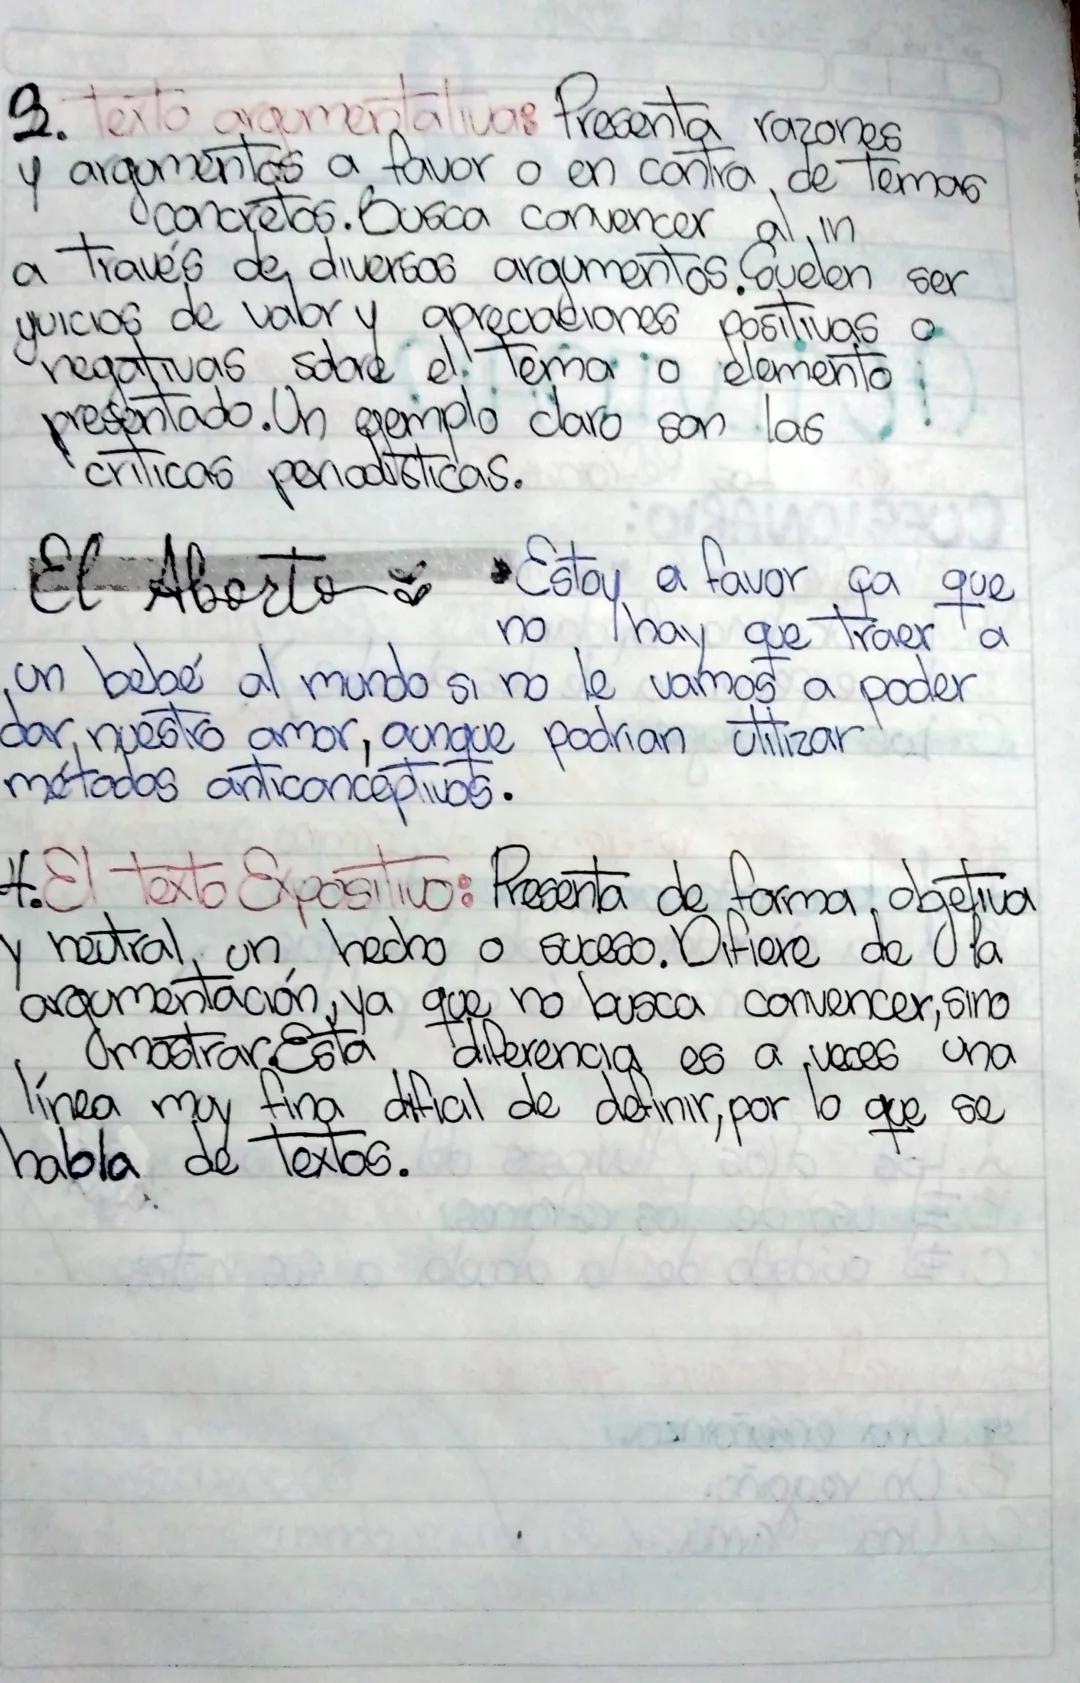 3. texto argumentativas: Presenta razones
y argumentos a favor o en contra, de temas
concretos. Busca convencer al in
a través de diversos argumentos. Suelen ser
yuicios de valor y apreciaciones positivas o
negativas sobre el tema o elemento
presentado. Un ejemplo claro son las
críticas periodísticas.
El Aborto
•Estoy a favor ya que
no hay que traer a
un bebé al mundo si no le vamos a poder
dar, nuestro amor, aunque podrian utilizar
métodos anticonceptivos.
4. El texto Expositivo: Presenta de forma objetiva
y neutral, un hecho o suceso. Difiere de la
argumentación, ya que no busca convencer, sino
mostrar. Esta diferencia es a veces una
línea muy fina dificial de definir, por lo que se
habla de textos.